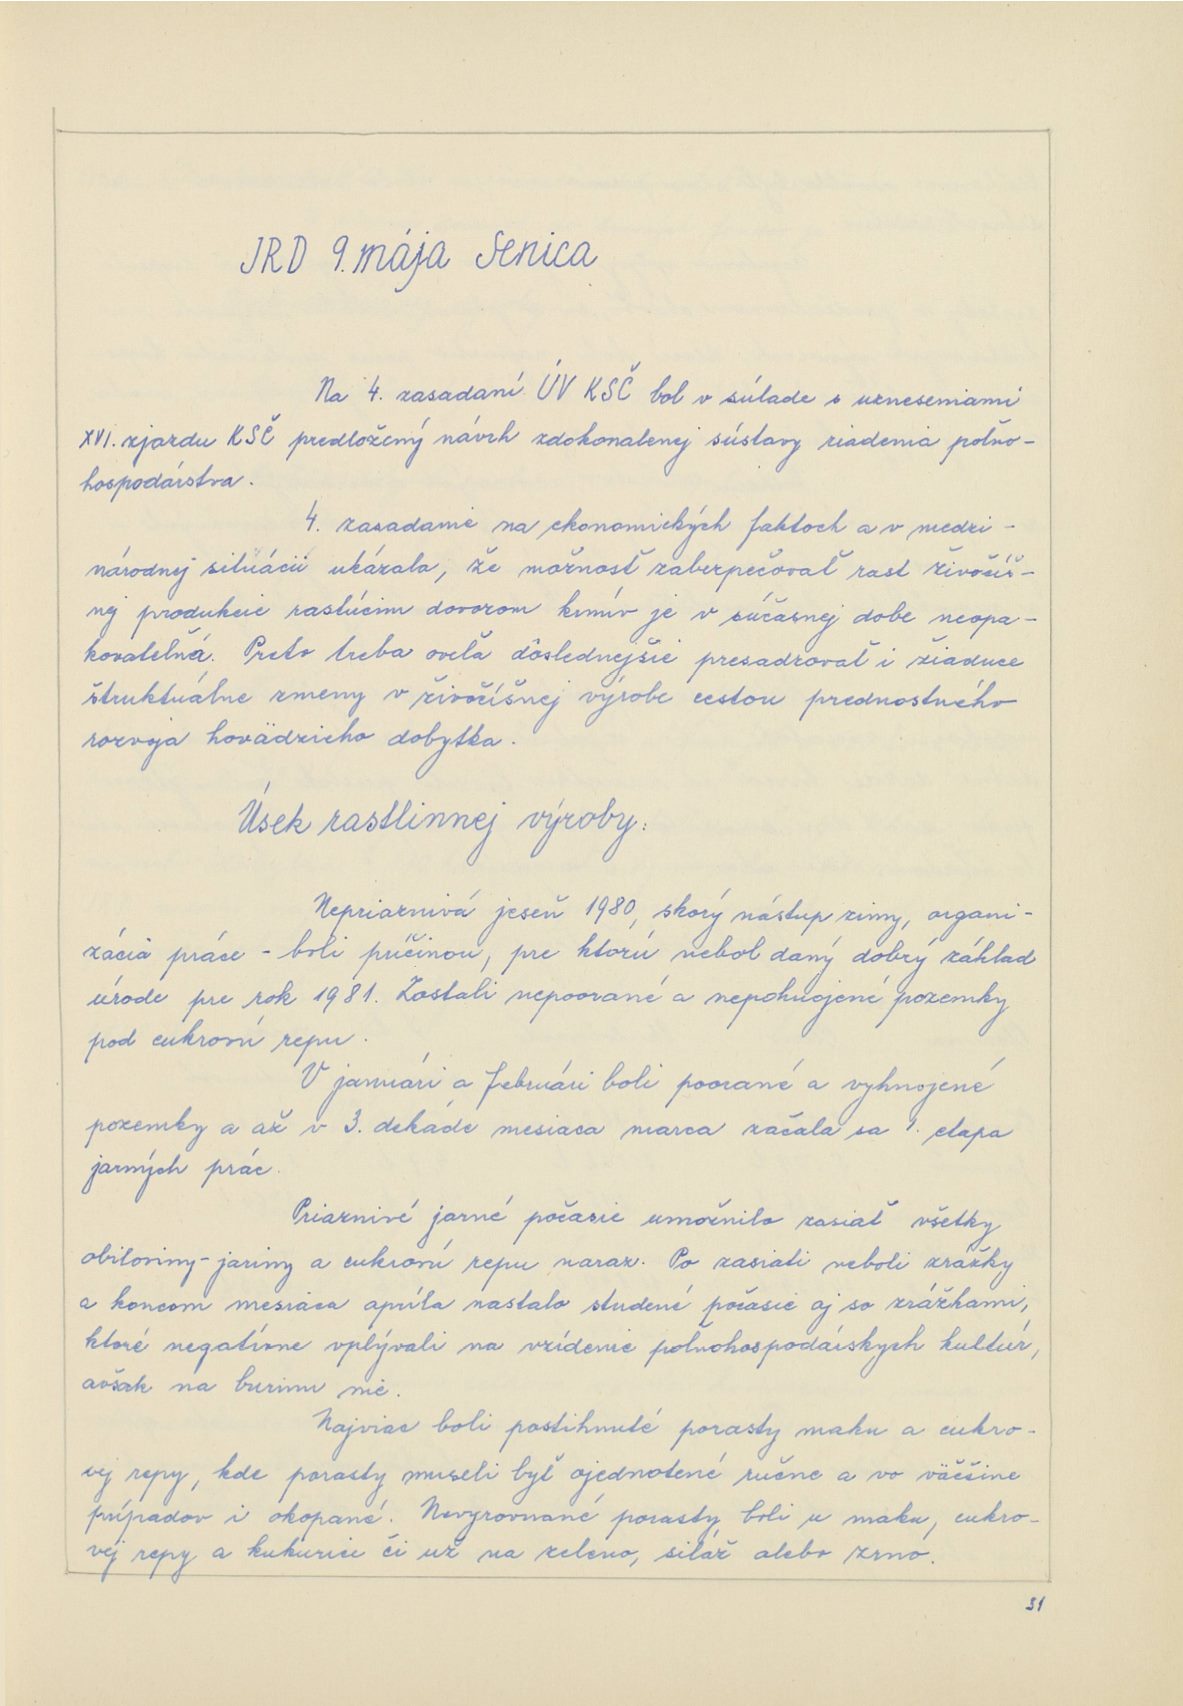 JRD 9. mája Senica
Na 4. zasadaní ÚV KSČ bol v súlade s uzneseniami
XVI. zjazdu KSČ predložený návrh zdokonalenej sústavy riadenia poľno-
hospodárstva.
4. zasadanie na ekonomických faktoch a v medzi-
národnej situácii ukázala, že možnosť zabezpečovať rast živočíš-
nej produkcie rastúcim dovozom krmív je v súčasnej dobe neopa-
kovateľná. Preto treba oveľa dôslednejšie presadzovať i žiaduce
štruktuálne zmeny v živočíšnej výrobe cestou prednostného
rozvoja hovädzieho dobytka.
Úsek rastlinnej výroby:
Nepriaznivá jeseň 1980, skorý nástup zimy, organi-
zácia práce - boli príčinou, pre ktorú nebol daný dobrý základ
úrode pre rok 1981. Zostali nepoorané a nepohnojené pozemky
pod cukrovú repu.
V januári a februári boli poorané a vyhnojené
pozemky a až v 3. dekáde mesiaca marca začala sa 1. etapa
jarných prác.
Priaznivé jarné počasie umožnilo zasiať všetky
obiloviny - jariny a cukrovú repu naraz. Po zasiati neboli zrážky
a koncom mesiaca apríla nastalo studené počasie aj so zrážkami,
ktoré negatívne vplývali na vzídenie poľnohospodárskych kultúr,
avšak na burinu nie.
Najviac boli postihnuté porasty maku a cukro-
vej repy, kde porasty museli byť ojednotené ručne a vo väčšine
prípadov i okopané. Nevyrovnané porasty boli u maku, cukro-
vej repy a kukurice či už na zeleno, siláž alebo zrno.
31